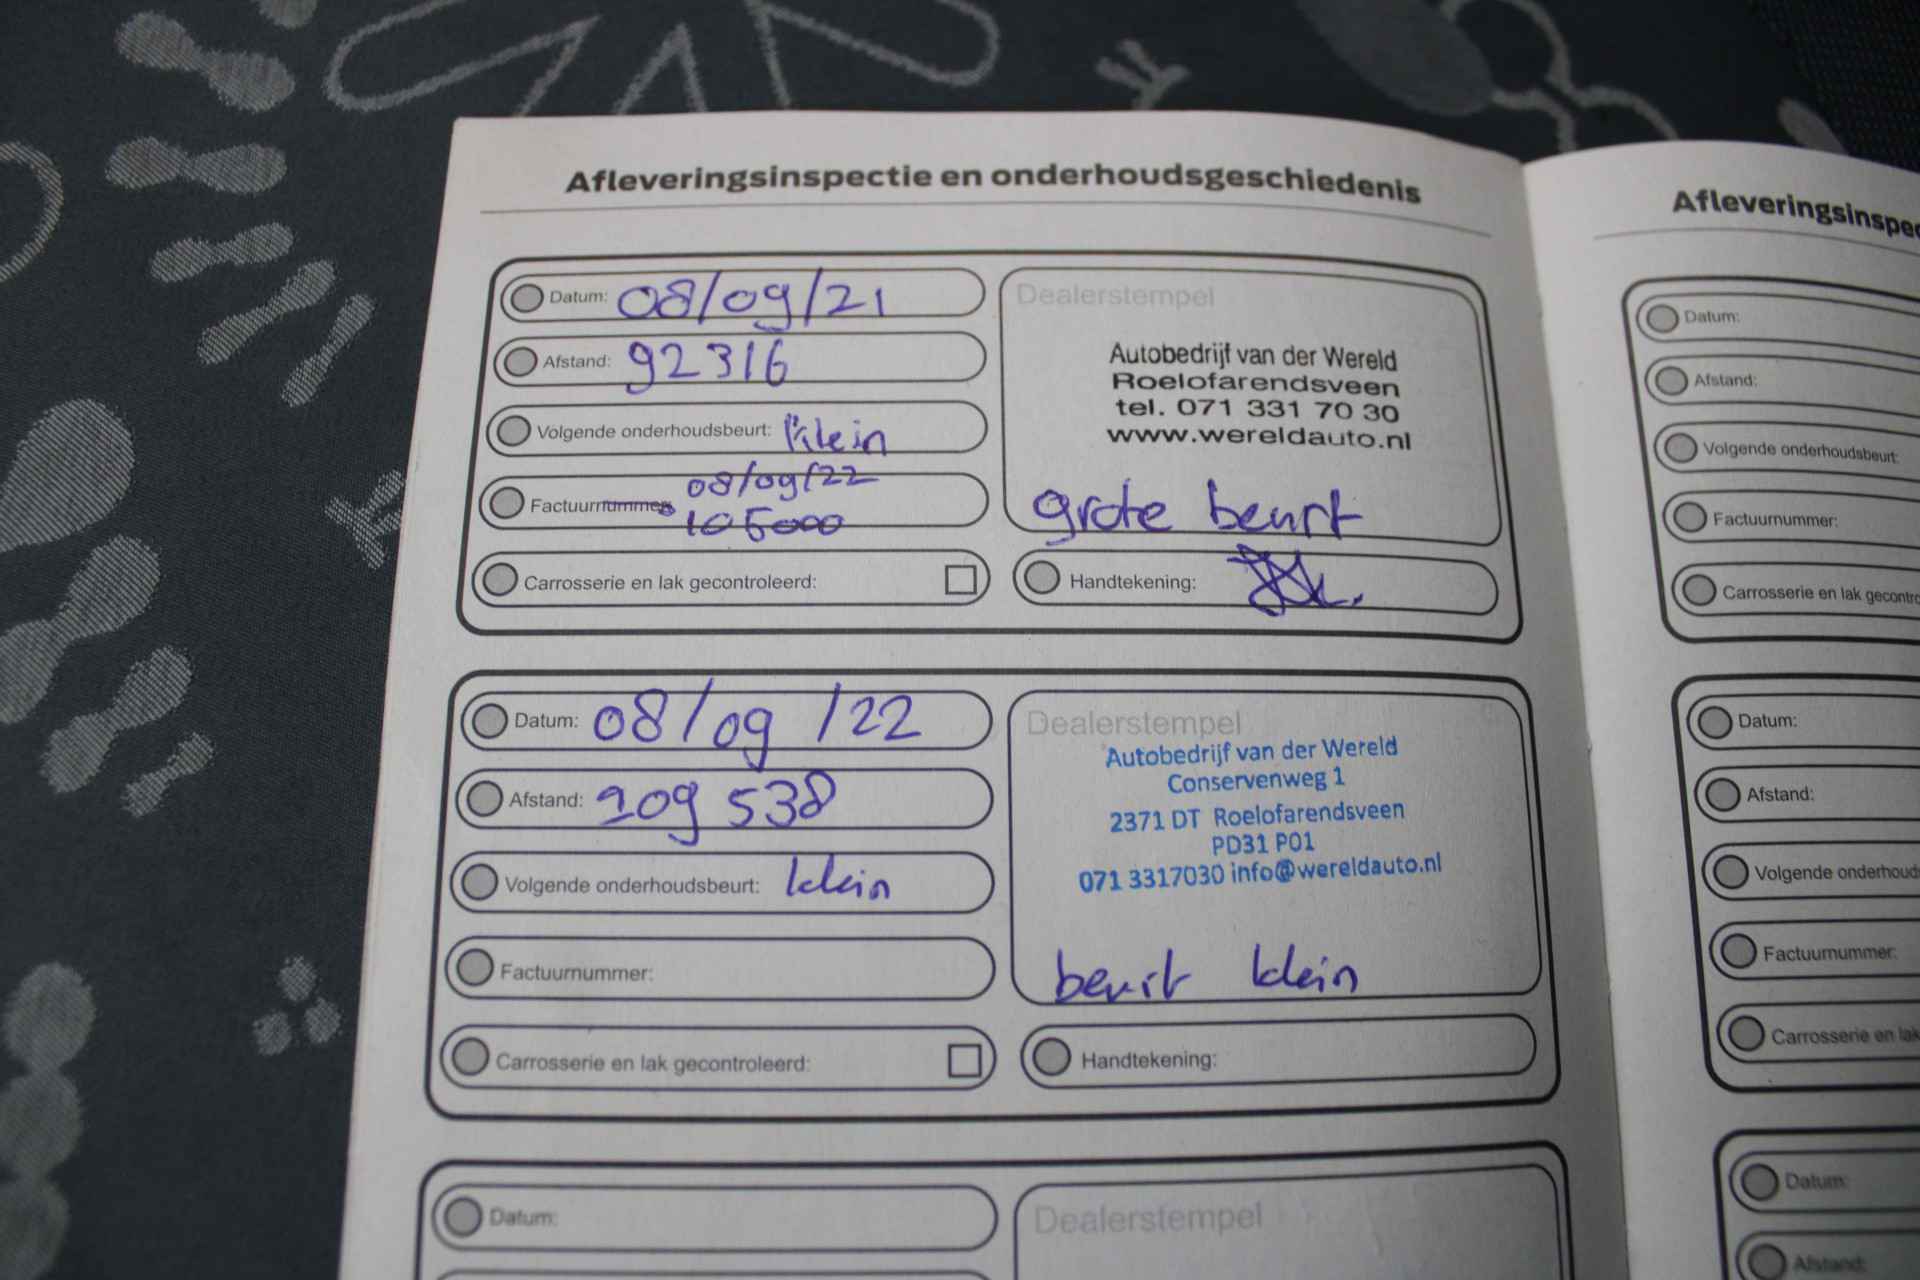 Afleveringsinspectie en onderhoudsgeschiedenis
Datum: 08/09/21
Afstand: 92316
Volgende onderhoudsbeurt: klein
Factuurnummer:
08/09/22
105000
Carrosserie en lak gecontroleerd:
Dealerstempel
Autobedrijf van der Wereld
Roelofarendsveen
tel. 071 331 70 30
www.wereldauto.nl
grote beurt
Handtekening:
Datum: 08/09/22
Afstand: 109 538
Volgende onderhoudsbeurt: klein
Factuurnummer:
Carrosserie en lak gecontroleerd:
Dealerstempel
Autobedrijf van der Wereld
Conservenweg 1
2371 DT Roelofarendsveen
PD31 P01
071 3317030 info@wereldauto.nl
beurt klein
Handtekening:
Datum:
Dealerstempel
Afleveringsinspec
Datum:
Afstand:
Volgende onderhoudsbeurt:
Factuurnummer:
Carrosserie en lak gecontro
Datum:
Afstand:
Volgende onderhouds
Factuurnummer:
Carrosserie en lak
Datum:
Afstand: